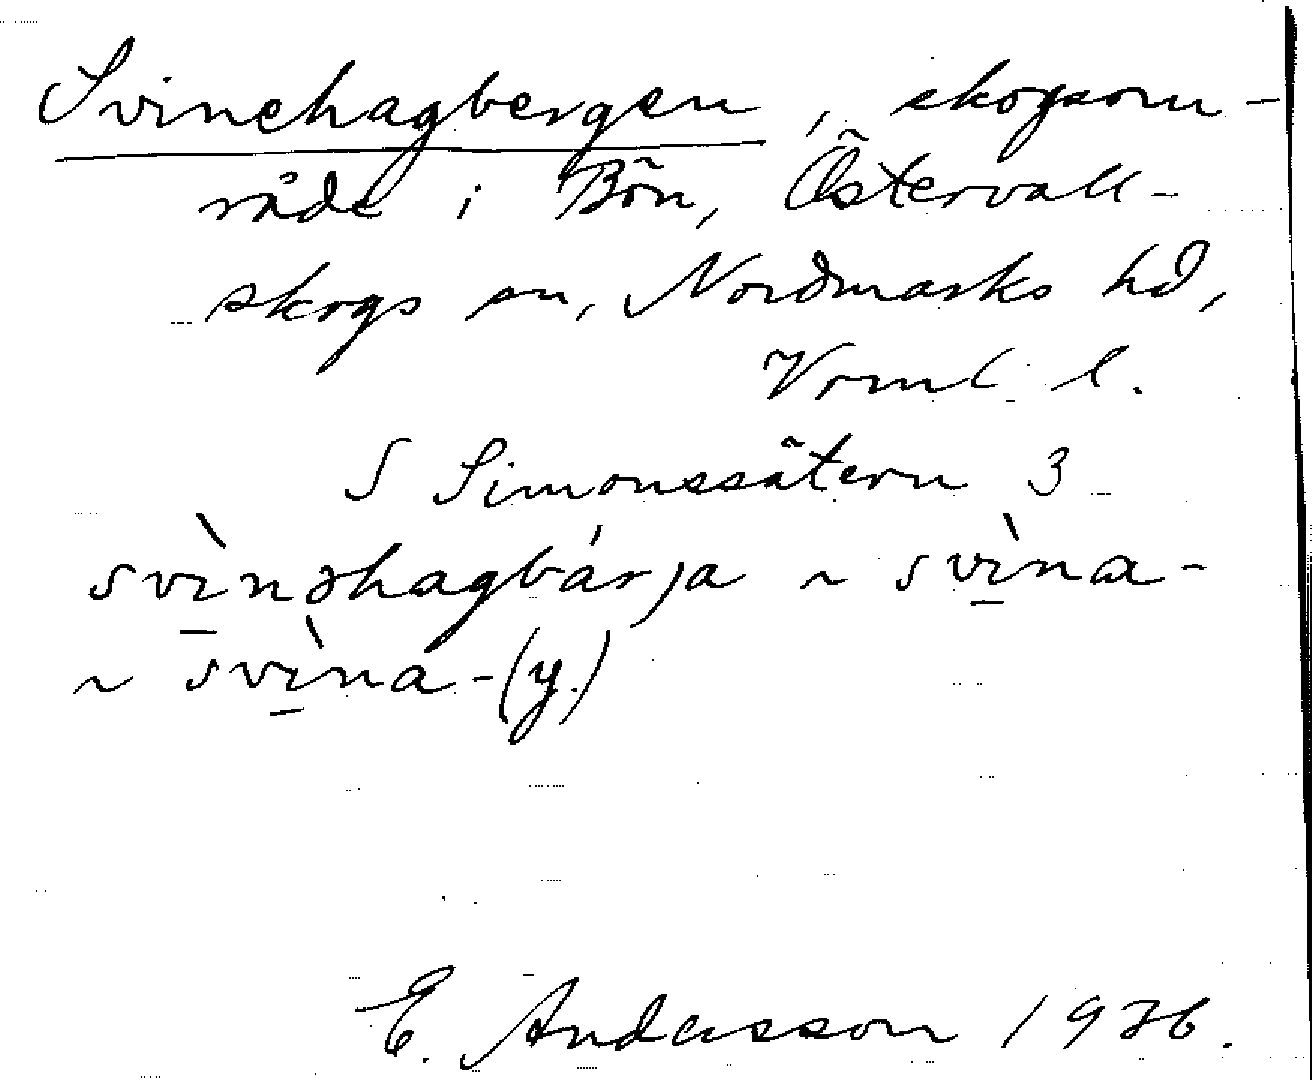 Svinehagbergen, skogsom-
råde i Bön, Östervall-
skogs sn, Nordmarks hd,
Vrml l.
S Simonssätern 3
svì̱nəhagbárja ~ svì̱na-
~ svì̱na-(y.)
E. Andersson 1936.